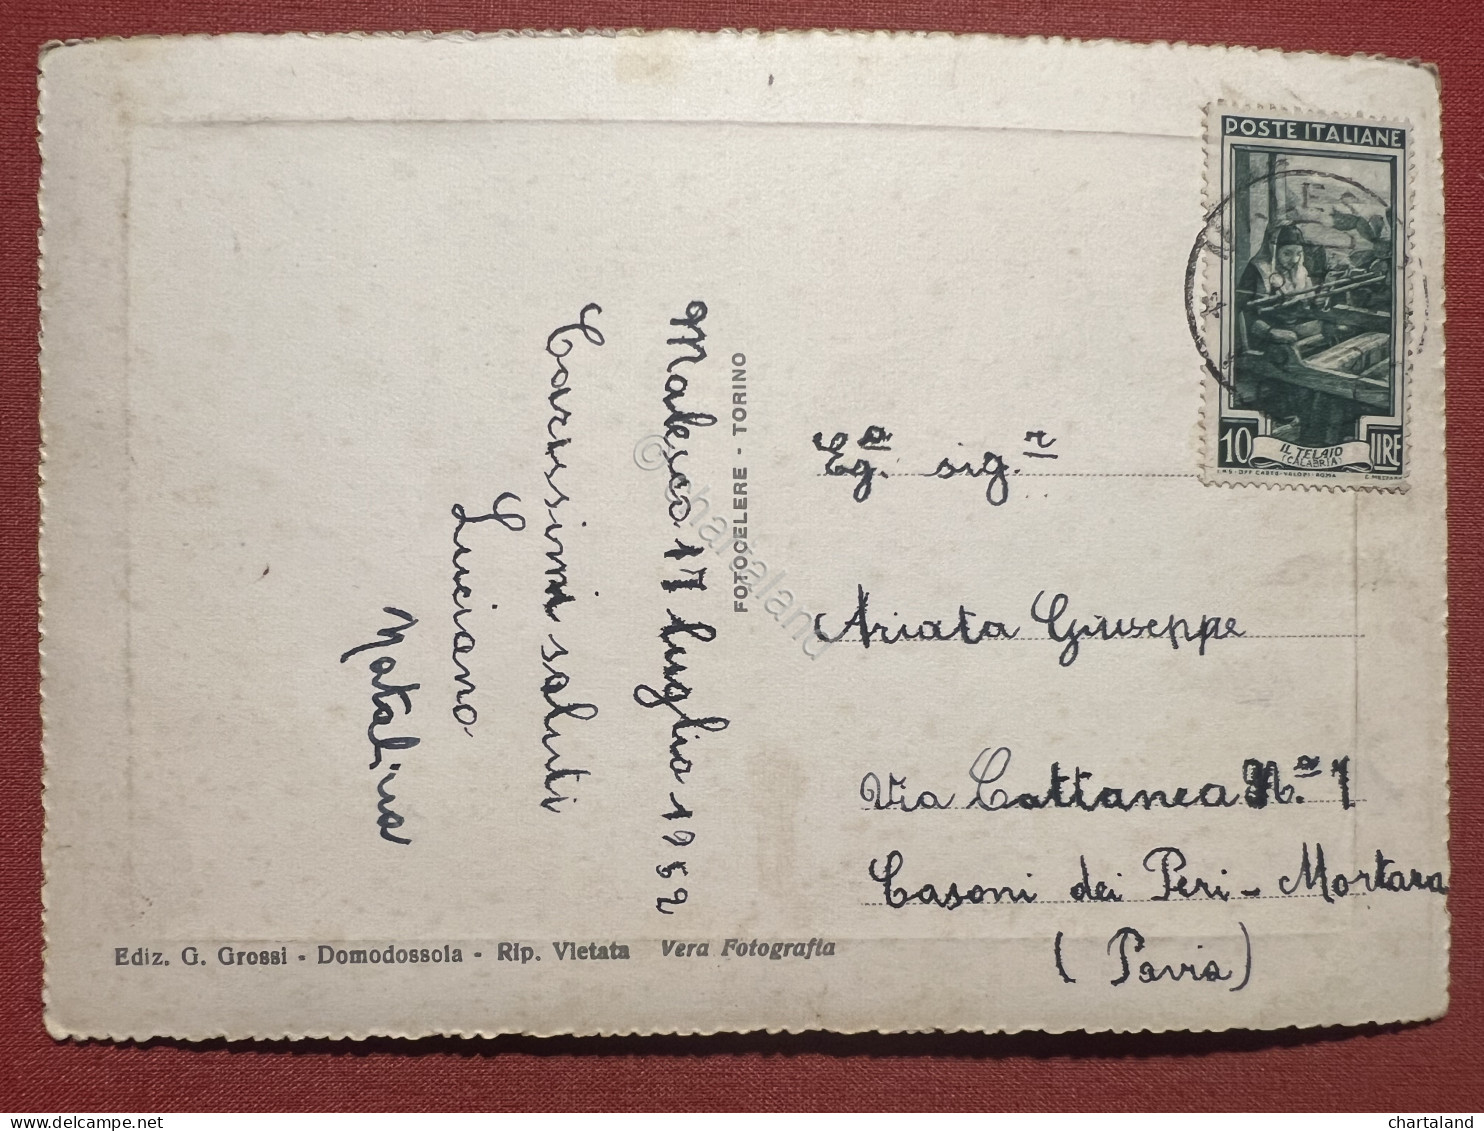 Malesco 17 luglio 1952
Carissimi saluti
Luciano
Natalina
FOTOCELERE - TORINO
© chartaland
POSTE ITALIANE
10 LIRE
IL TELAIO
(CALABRIA)
Eg.º sig.r
Ariata Giuseppe
Via Cattanea N.º 1
Casoni dei Peri - Mortara
(Pavia)
Ediz. G. Grossi - Domodossola - Rip. Vietata Vera Fotografia
chartaland